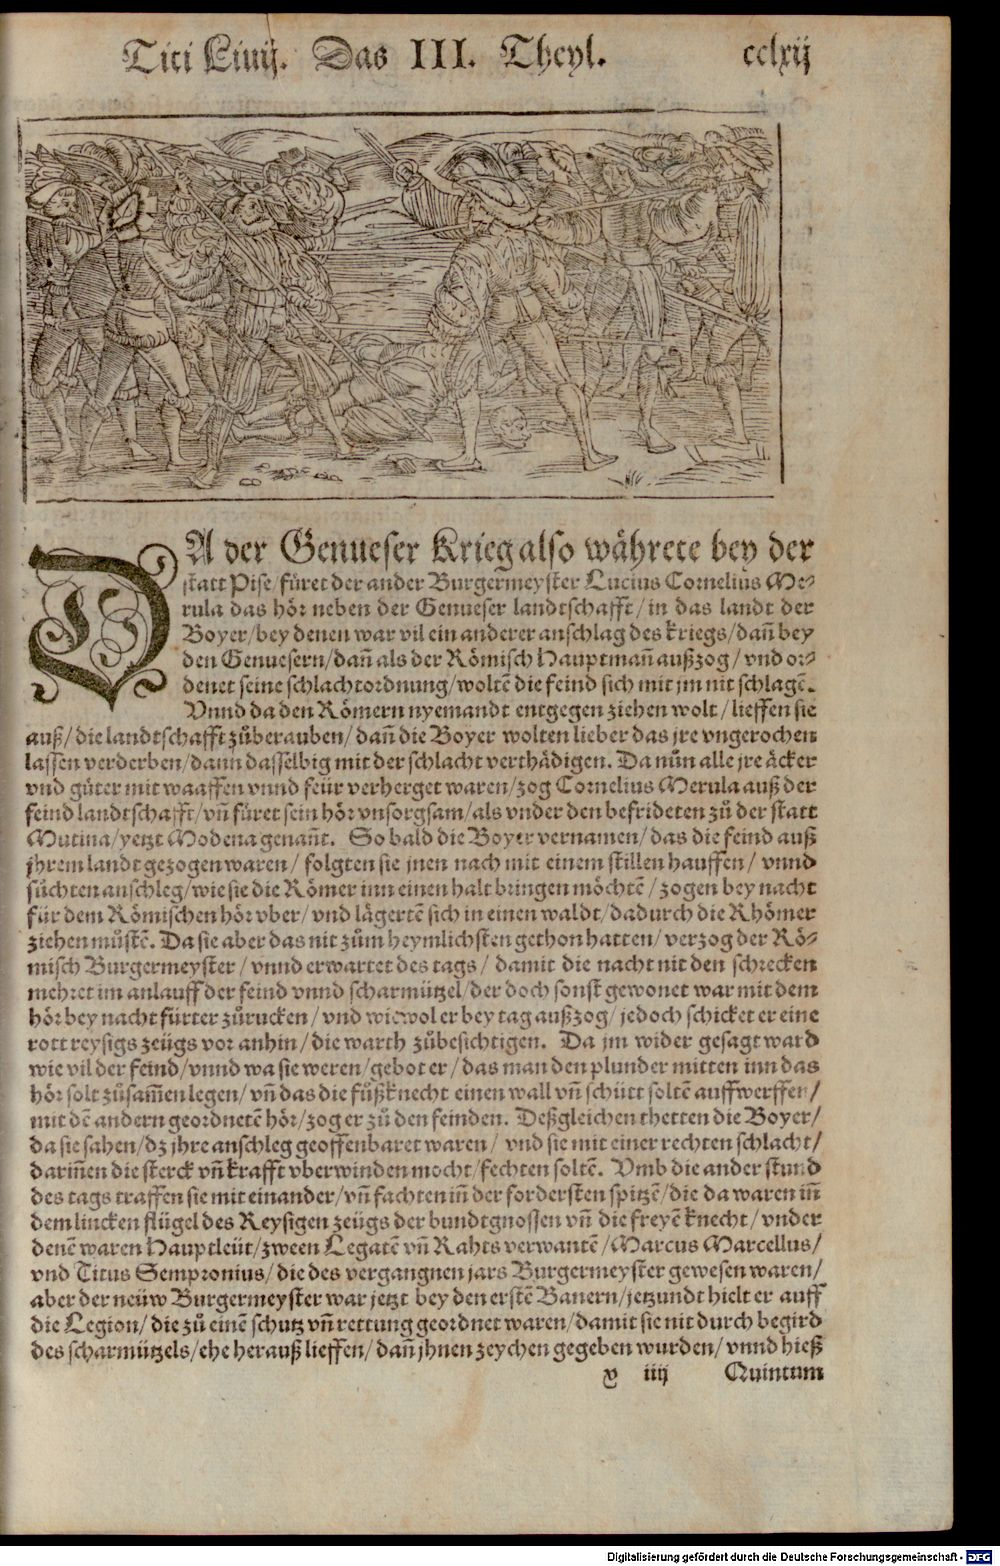 Titi Liuij. Das III. Theyl. cclxij
DA der Genueser Krieg also währete bey der
statt Pise/ füret der ander Burgermeyster Lucius Cornelius Me-
rula das hör neben der Genueser landtschafft/ in das landt der
Boyer/ bey denen war vil ein anderer anschlag des kriegs/ dañ bey
den Genuesern/ dañ als der Römisch Hauptmañ außzog/ vnd or-
denet seine schlachtordnung/ woltẽ die feind sich mit jm nit schlagẽ.
Vnnd da den Römern nyemandt entgegen ziehen wolt/ lieffen sie
auß/ die landtschafft zůberauben/ dañ die Boyer wolten lieber das jre vngerochen
lassen verderben/ dann dasselbig mit der schlacht verthädigen. Da nůn alle jre äcker
vnd güter mit waaffen vnnd feür verherget waren/ zog Cornelius Merula auß der
feind landtschafft/ vñ füret sein hör vnsorgsam/ als vnder den befrideten zů der statt
Mutina/ yetzt Modena genañt. So bald die Boyer vernamen/ das die feind auß
jhrem landt gezogen waren/ folgten sie jnen nach mit einem stillen hauffen/ vnnd
süchten anschleg/ wie sie die Römer inn einen halt bringen möchtẽ/ zogen bey nacht
für dem Römischen hör vber/ vnd lägertẽ sich in einen waldt/ dadurch die Rhömer
ziehen můstẽ. Da sie aber das nit zům heymlichsten gethon hatten/ verzog der Rö-
misch Burgermeyster/ vnnd erwartet des tags/ damit die nacht nit den schrecken
mehret im anlauff der feind vnnd scharmützel/ der doch sonst gewonet war mit dem
hör bey nacht fürter zůrucken/ vnd wiewol er bey tag außzog/ jedoch schicket er eine
rott reysigs zeügs vor anhin/ die warth zůbesichtigen. Da jm wider gesagt ward
wie vil der feind/ vnnd wa sie weren/ gebot er/ das man den plunder mitten inn das
hör solt zůsam̃en legen/ vñ das die fůßknecht einen wall vñ schütt soltẽ auffwerffen/
mit dẽ andern geordnetẽ hör/ zog er zů den feinden. Deßgleichen thetten die Boyer/
da sie sahen/ dz jhre anschleg geoffenbaret waren/ vnd sie mit einer rechten schlacht/
darim̃en die sterck vñ krafft vberwinden mocht/ fechten soltẽ. Vmb die ander stund
des tags traffen sie mit einander/ vñ fachten iñ der fordersten spitzẽ/ die da waren iñ
dem lincken flügel des Reysigen zeügs der bundtgnossen vñ die freyẽ knecht/ vnder
denẽ waren Hauptleüt/ zween Legatẽ vñ Rahts verwantẽ/ Marcus Marcellus/
vnd Titus Sempronius/ die des vergangnen jars Burgermeyster gewesen waren/
aber der neüw Burgermeyster war jetzt bey den erstẽ Banern/ jetzundt hielt er auff
die Legion/ die zů einẽ schutz vñ rettung geordnet waren/ damit sie nit durch begird
des scharmützels/ ehe herauß lieffen/ dañ jhnen zeychen gegeben wurden/ vnnd hieß
x iiij Quintum
Digitalisierung gefördert durch die Deutsche Forschungsgemeinschaft - DFG